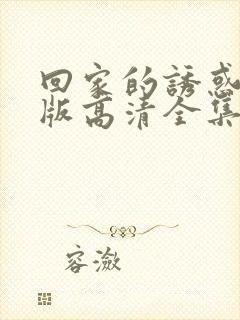 回家的誘惑
版高清全集
容潋